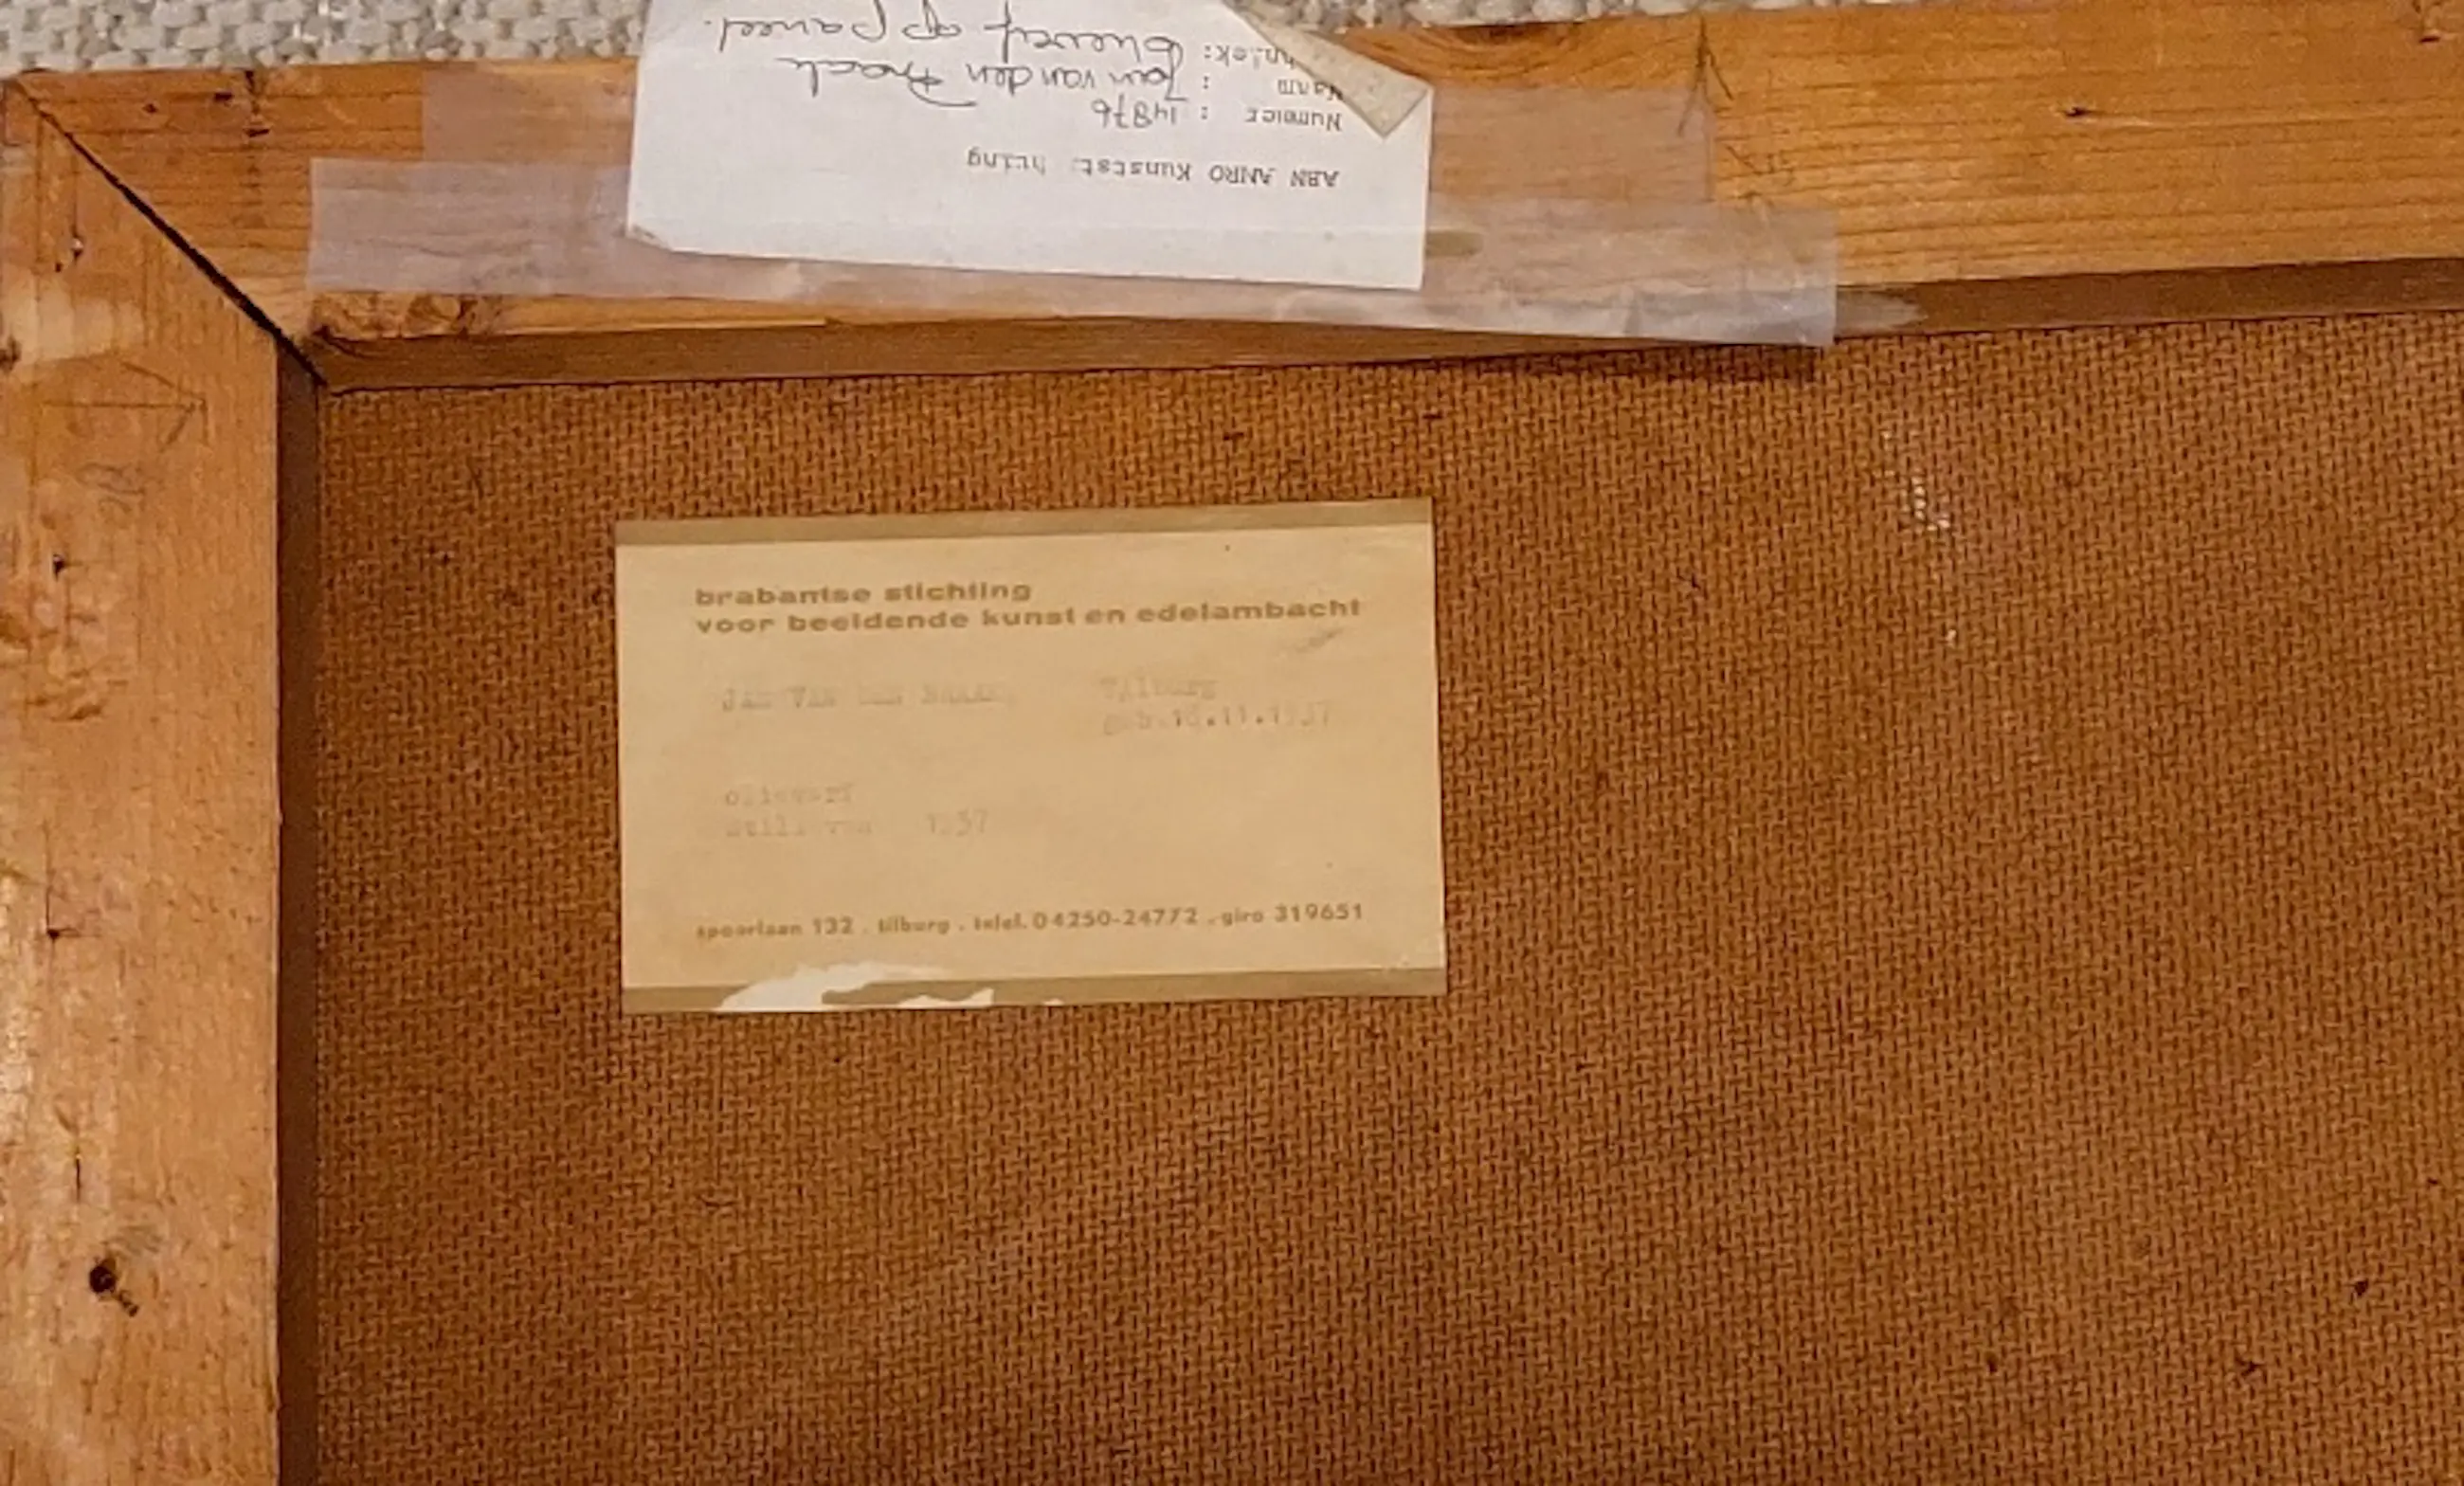 ABN AMRO Kunstst hting
Nummer : 14876
Naam : Jan van den
hniek: Olieverf op paneel.
brabantse stichting
voor beeldende kunst en edelambacht
JAN VAN DEN Tilburg
geb. .11.1937
olieverf
stilleven 1957
spoorlaan 132 . tilburg . telef. 04250-24772 . giro 319651